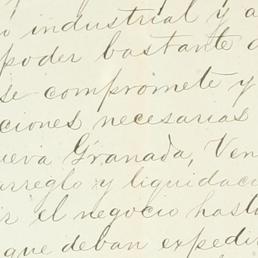 industrial y a
poder bastante
se compromete y
ciones necesarias
ueva Granada, Ven
arreglo y liquidaci
ir el negocio hasta
que deban expedir